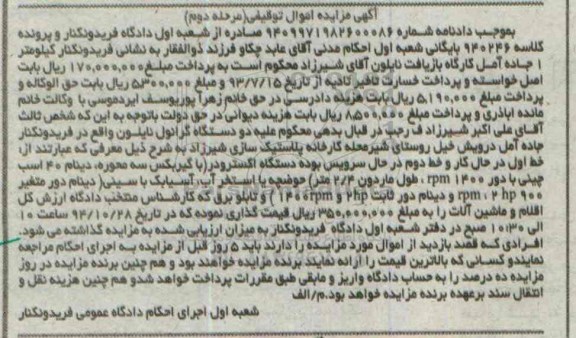 آگهی مزایده اموال توقیفی(مرحله دوم)
بموجب دادنامه شماره ۹۴۰۹۹۷۱۹۸۲۶۰۰۰۸۶ صادره از شعبه اول دادگاه فریدونکنار و پرونده
کلاسه ۹۴۰۲۴۶ بایگانی شعبه اول احکام مدنی آقای عابد چکاو فرزند ذوالفقار به نشانی فریدونکنار کیلومتر
۱ جاده آمل کارگاه بازیافت نایلون آقای شیرزاد محکوم است به پرداخت مبلغ ۱۷۰,۰۰۰,۰۰۰ ریال بابت
اصل خواسته و پرداخت خسارت تاخیر تادیه از تاریخ ۹۳/۷/۱۵ و مبلغ ۵۳۰۰,۰۰۰ ریال بابت حق الوکاله و
پرداخت مبلغ ۵,۱۹۰,۰۰۰ ریال بابت هزینه دادرسی در حق خانم زهرا پوریوسف ایردموسی با وکالت خانم
مائده اباذری و پرداخت مبلغ ۸,۵۰۰,۰۰۰ ریال بابت هزینه دیوانی در حق دولت باتوجه به این که شخص ثالث
آقای علی اکبر شیرزاد ف رجب در قبال بدهی محکوم علیه دو دستگاه گرانول نایلون واقع در فریدونکنار
جاده آمل درویش خیل روستای شیرمحله کارخانه پلاستیک سازی شیرزاد به شرح ذیل معرفی که عبارتند از،
خط اول در حال کار و خط دوم در حال سرویس بوده دستگاه اکسترودر(با گیربکس سه محوره، دینام ۴۰ اسب
چینی با دور ۱۴۰۰ rpm ، طول ماردون ۲/۴ متر) حوضچه یا استخر آب، آسیابک با سینی( دینام دور متغیر
۹۰۰ rpm ؛ ۲ hp و دینام دور ثابت ۲hp و ۱۴۰۰rpm) و تابلو برق که کارشناس منتخب دادگاه ارزش کل
اقلام و ماشین آلات را به مبلغ ۳۵۰,۰۰۰,۰۰۰ ریال قیمت گذاری نموده که در تاریخ ۹۴/۱۰/۲۸ ساعت ۱۰
الی ۱۰:۳۰ صبح در دفتر شعبه اول دادگاه فریدونکنار به میزان ارزیابی شده به مزایده گذاشته می شود.
افرادی که قصد بازدید از اموال مورد مزایده را دارند باید ۵ روز قبل از مزایده به اجرای احکام مراجعه
نمایندو کسانی که بالاترین قیمت را ارائه نمایند برنده مزایده خواهند بود و هم چنین برنده مزایده در روز
مزایده ده درصد را به حساب دادگاه واریز و مابقی طبق مقررات پرداخت خواهد شدو هم چنین هزینه نقل و
انتقال سند برعهده برنده مزایده خواهد بود.م/الف
شعبه اول اجرای احکام دادگاه عمومی فریدونکنار